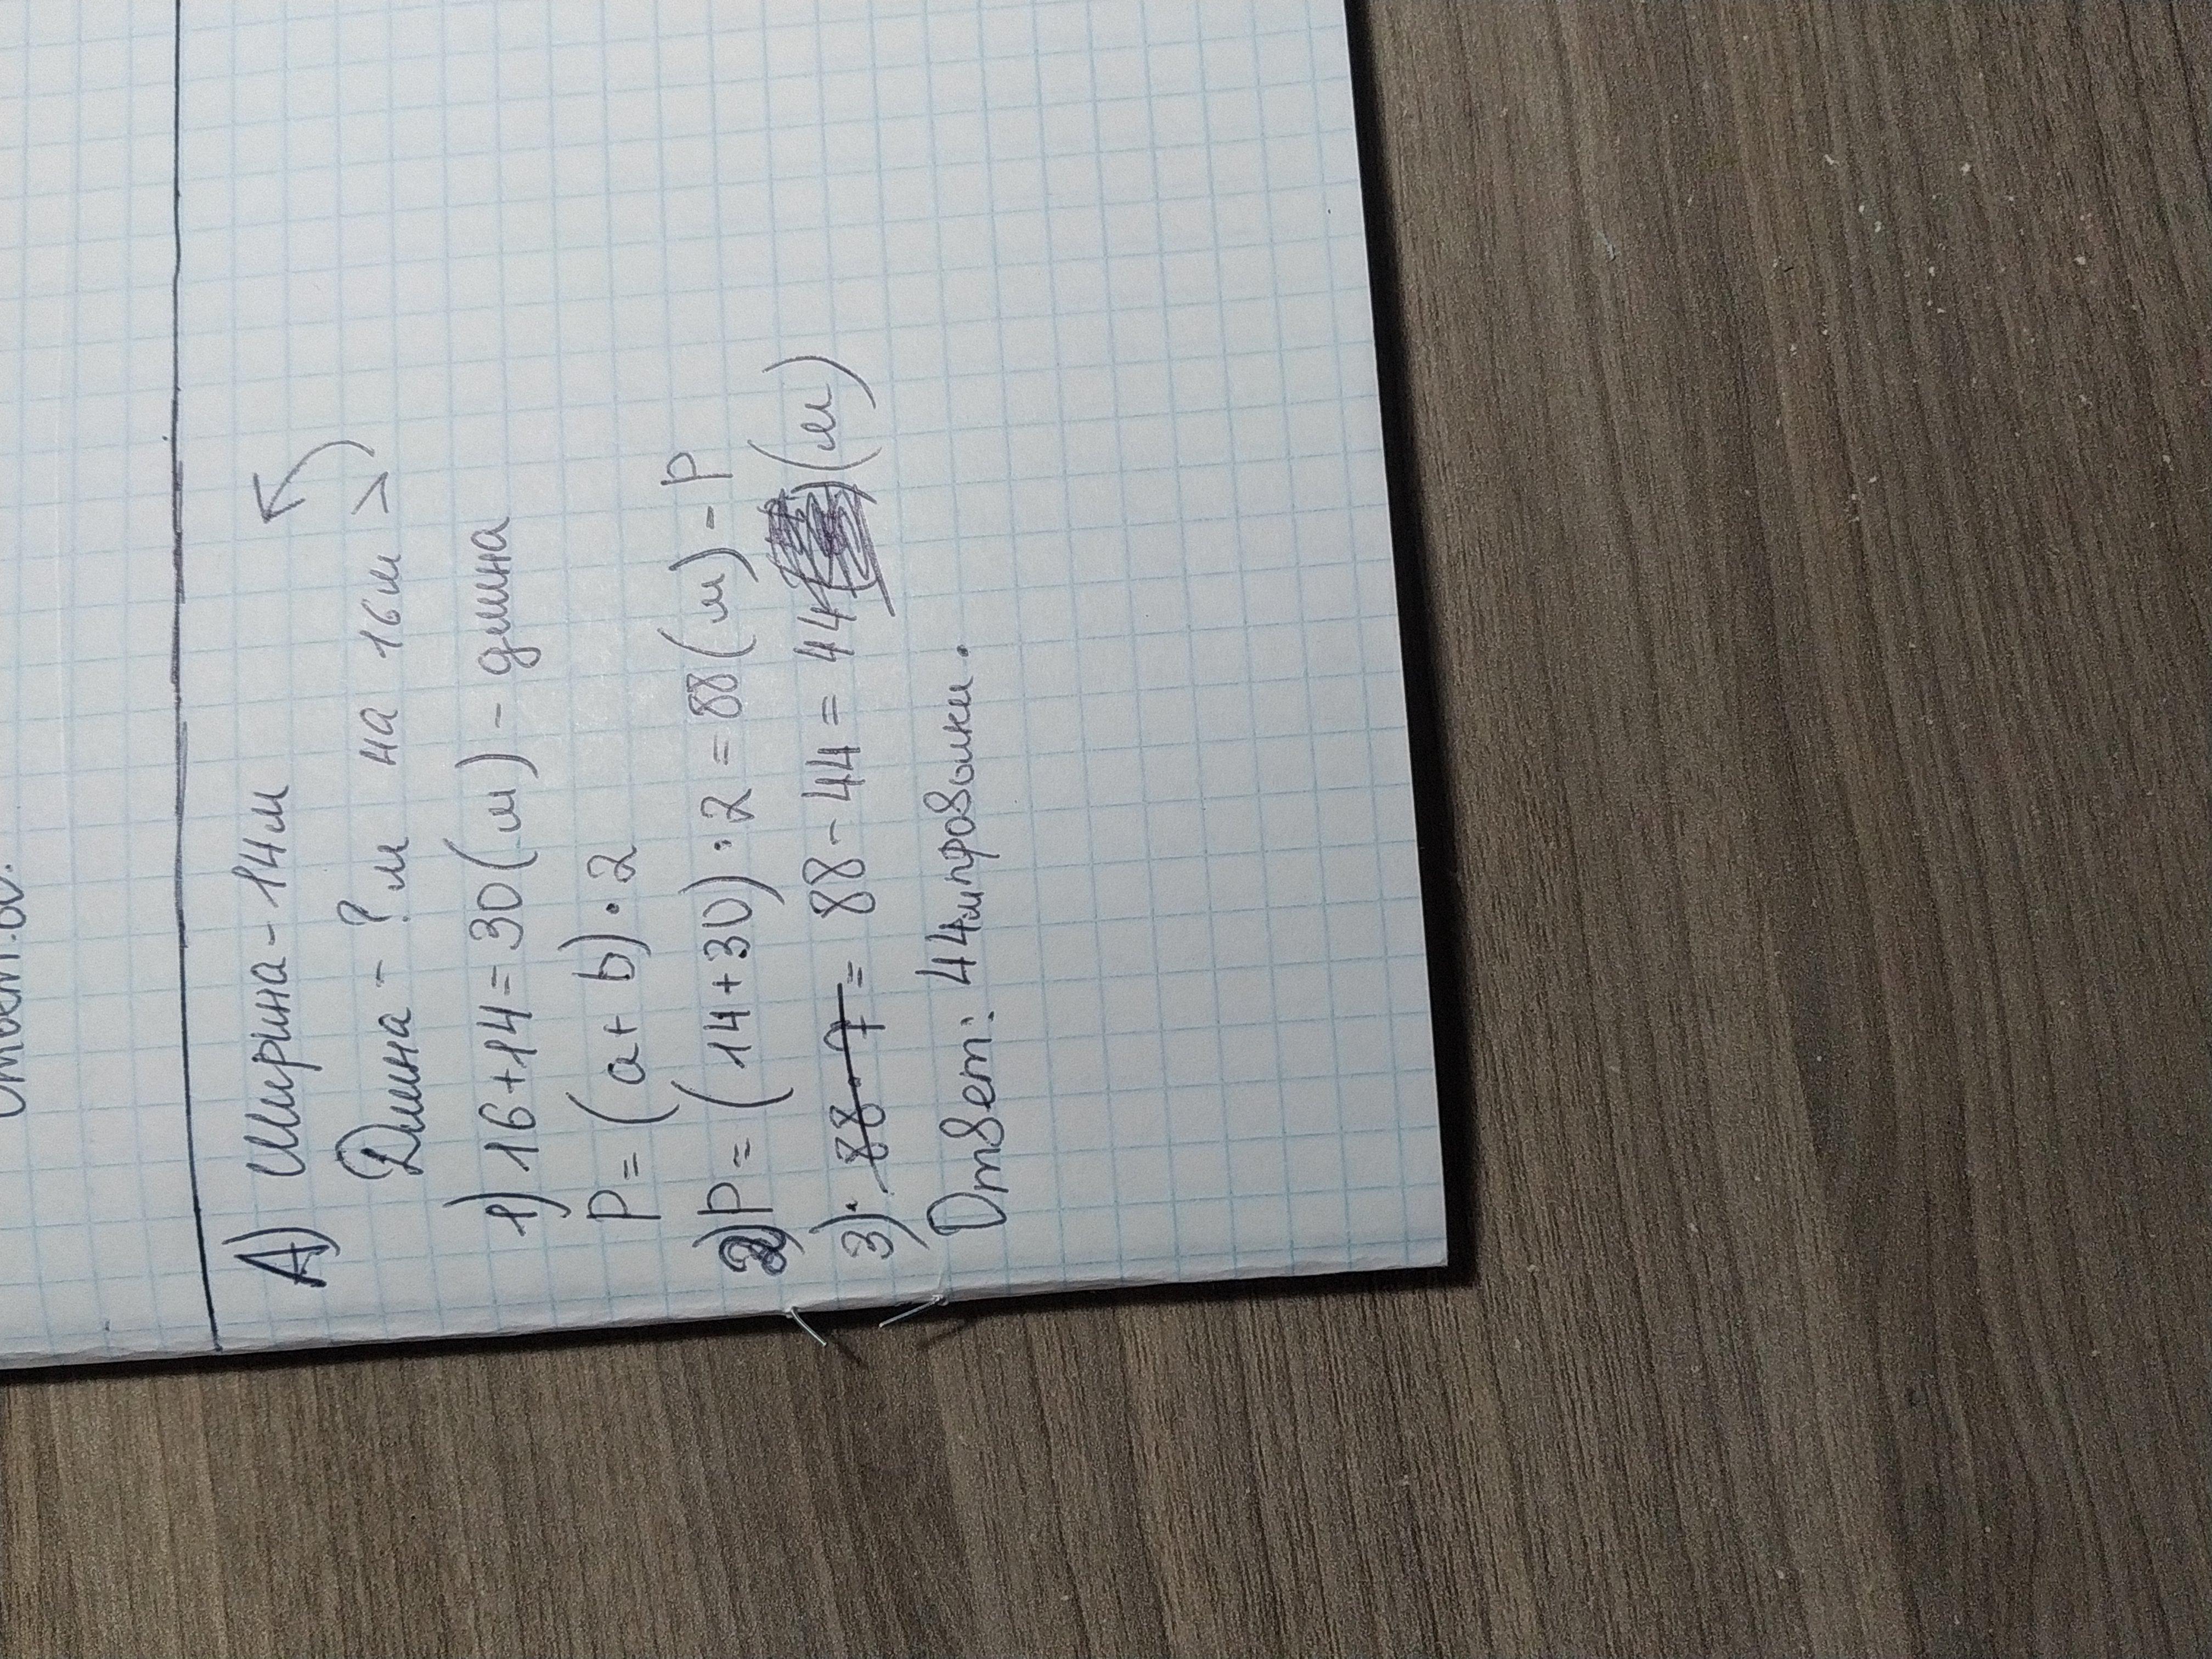 Ответ: 60.
А) Ширина - 14м
Длина - ? м на 16м >
1) 16+14=30(м) - длина
P = (a+b)·2
2) P = (14+30)·2=88(м) - P
3) 88·7 = 88-44=44 (м)
Ответ: 44м